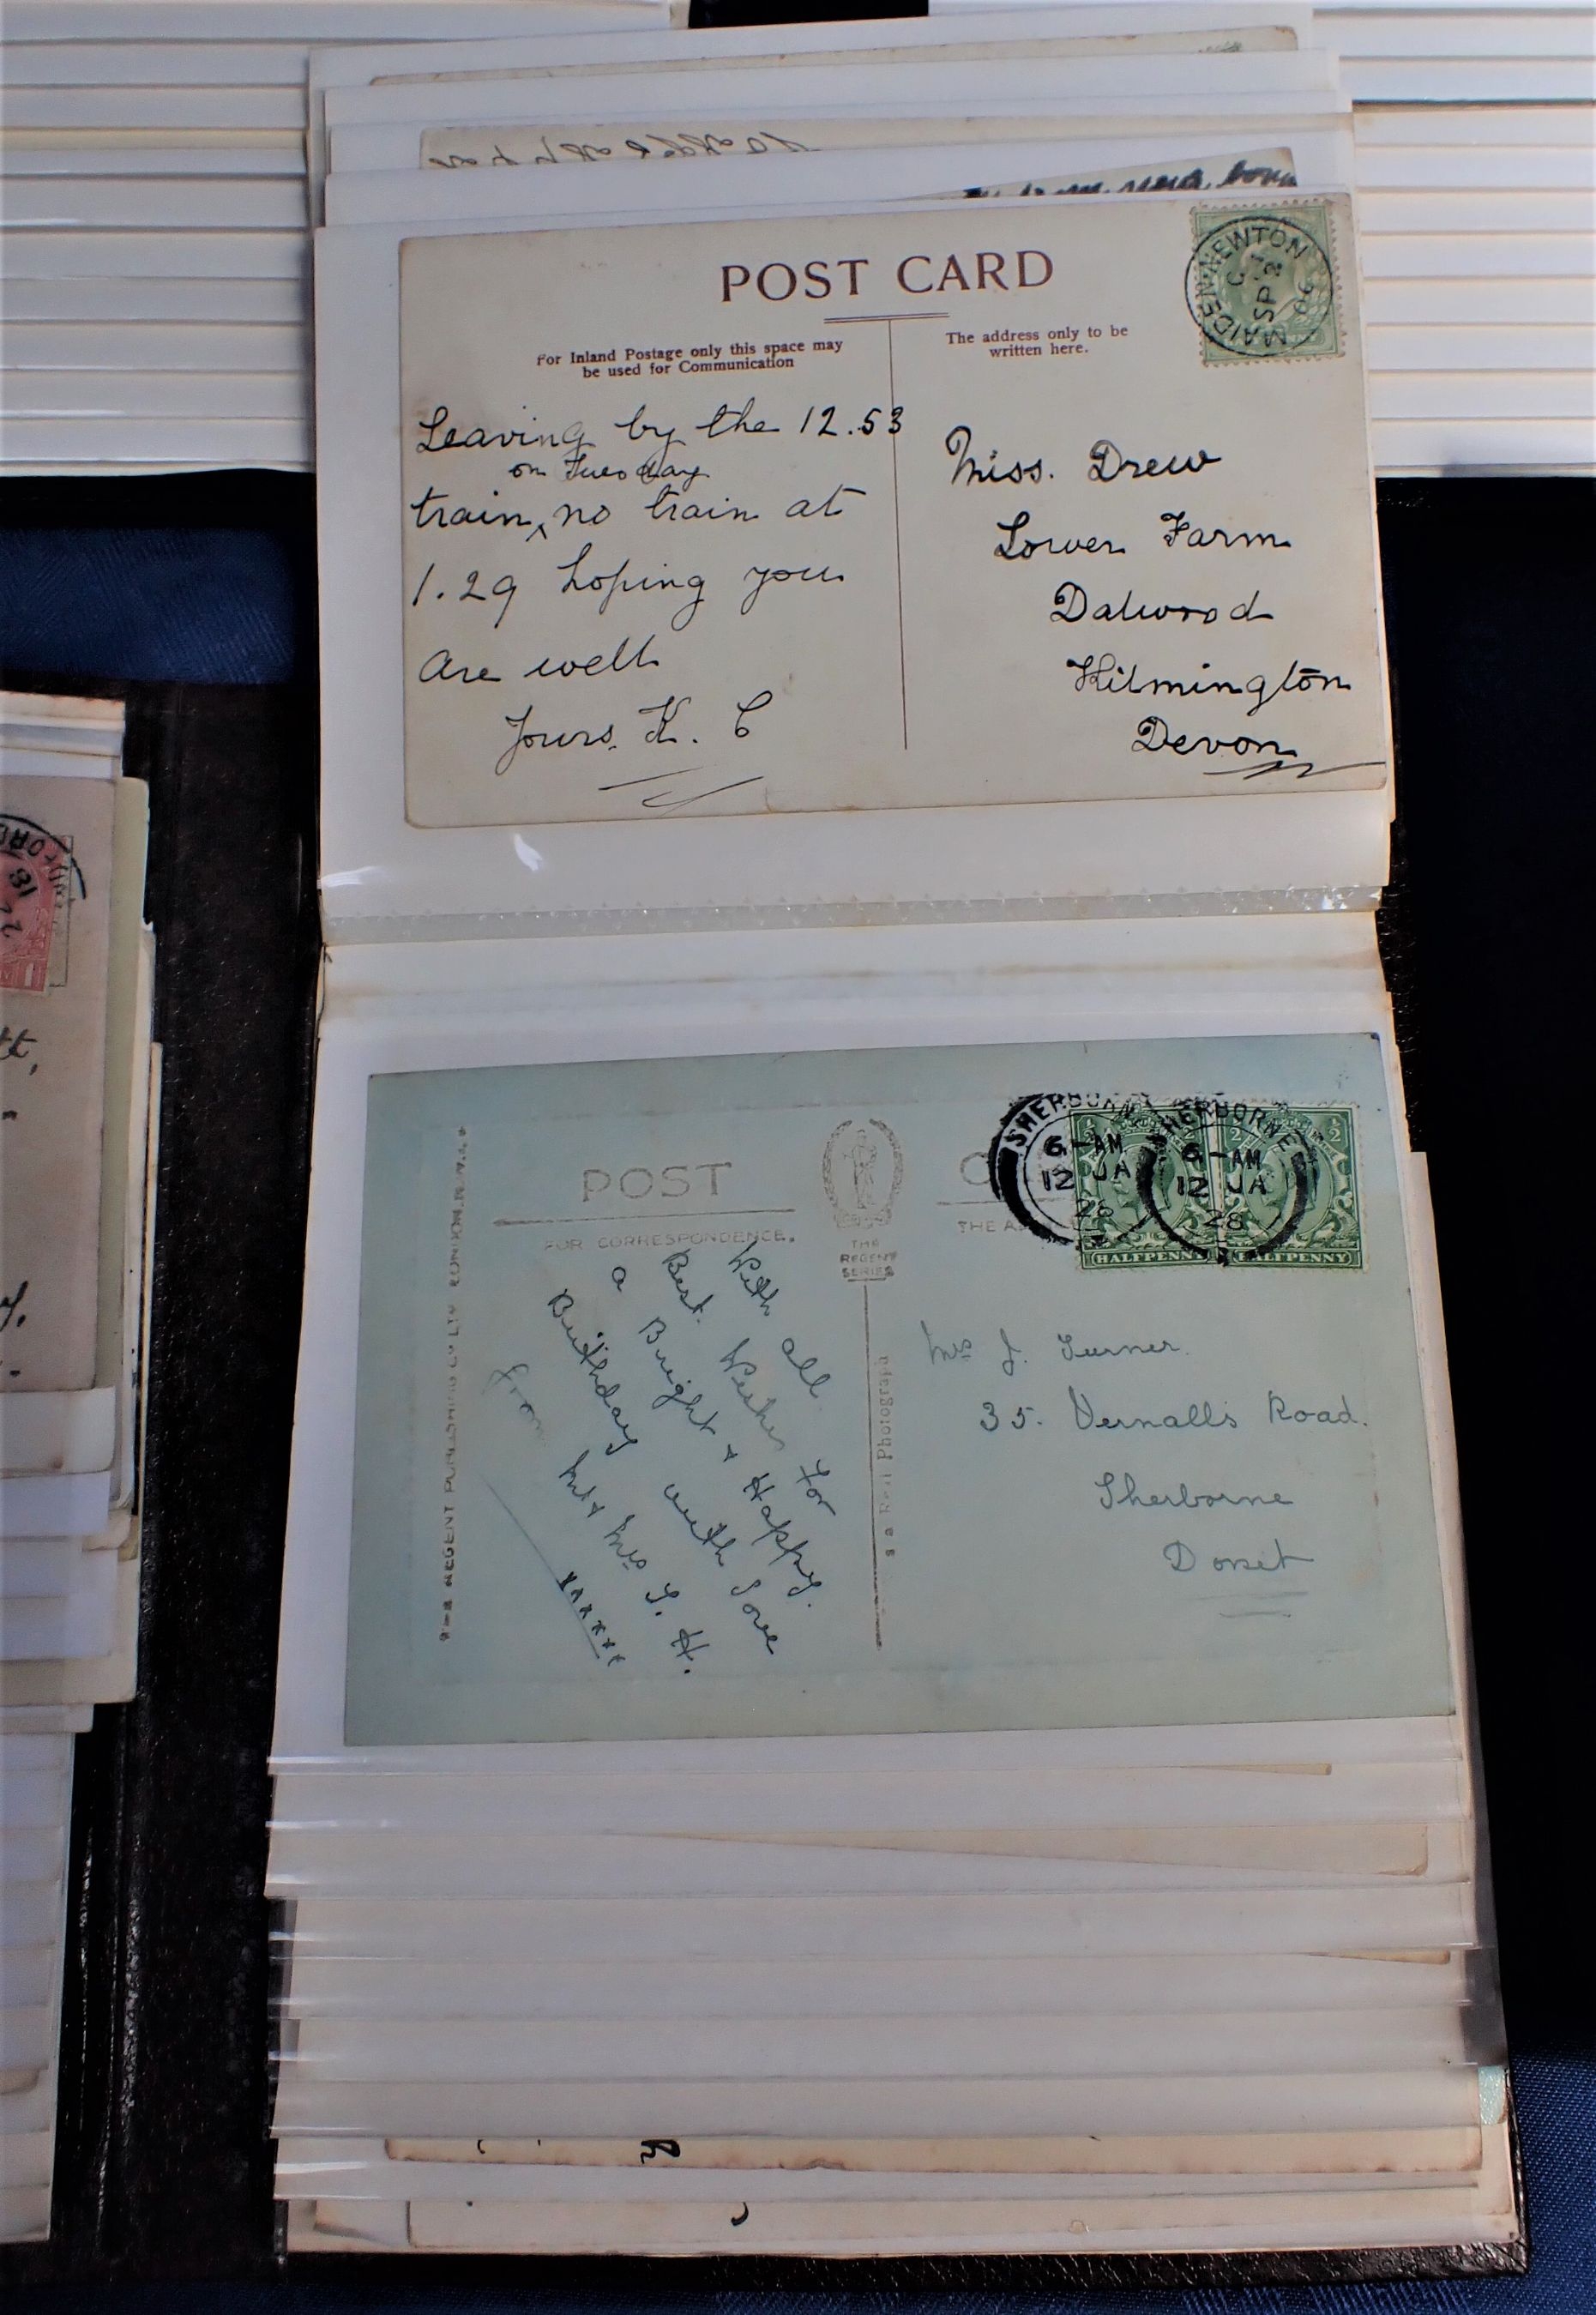 POST CARD
For Inland Postage only this space may
be used for Communication
The address only to be
written here.
MAIDEN-NEWTON
SP 2
06
Leaving by the 12.53
on Tuesday
train, no train at
1.29 hoping you
are well
Yours. K. C
Miss. Drew
Lower Farm
Dalwood
Kilmington
Devon
POST
FOR CORRESPONDENCE.
THE
REGENT
SERIES
THE
SHERBORNE
6-AM
12 JA
28
SHERBORNE
6-AM
12 JA
28
HALFPENNY
HALFPENNY
REGENT PUBLISHING CO LTD LONDON.
a Real Photograph
With all
Best Wishes for
a Bright & Happy.
Birthday with Love
from Mr & Mrs
H.
xxxxxx
Mrs J. Turner.
35. Vernalls Road.
Sherborne
Dorset